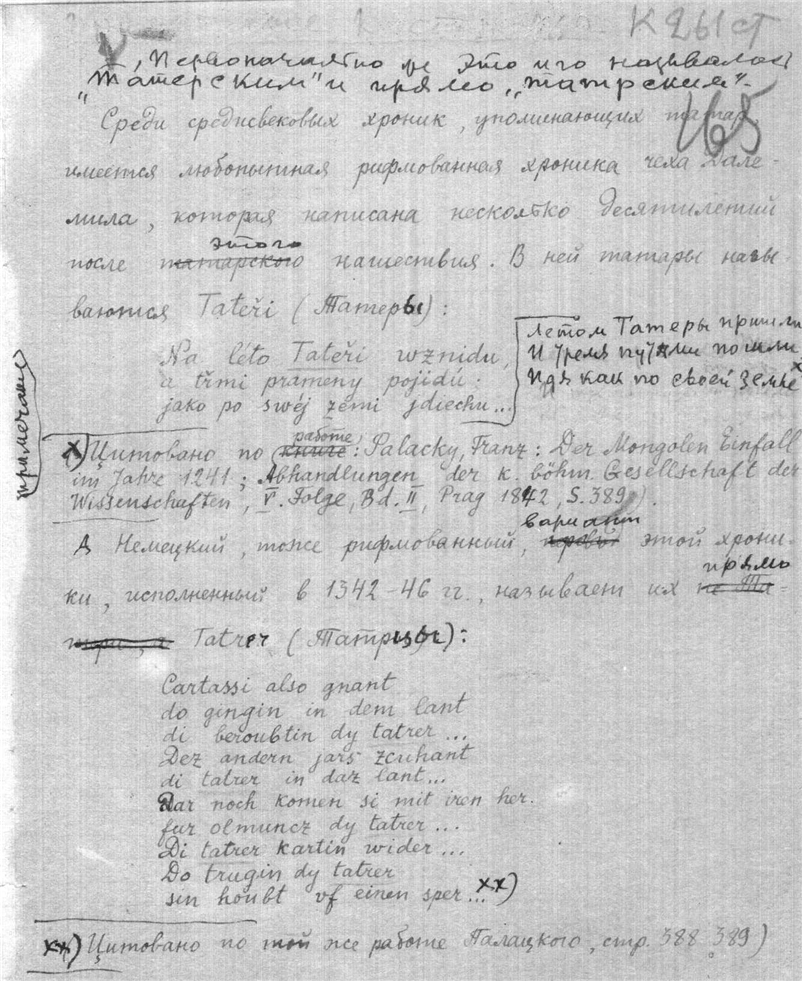 К 261 ст
Первоначально же это иго называлось
"Татерским" и прямо "татрским".
165
Среди средневековых хроник, упоминающих татар,
имеется любопытная рифмованная хроника чеха Дале-
мила, которая написана несколько десятилетий
после татарского этого нашествия. В ней татары назы-
ваются Tateři (Татеры):
Na léto Tateři wznidu,
a třmi prameny pojidú:
jako po swéj zemi jdiechu...
Летом Татеры пришли
И тремя путями пошли
Идя как по своей Земле x
примечание
x) Цитовано по книге работе: Palacky, Franz: Der Mongolen Einfall
im Jahre 1241; Abhandlungen der k. böhm. Gesellschaft der
Wissenschaften, V. Folge, Bd. II, Prag 1842, S. 389).
А Немецкий, тоже рифмованный, вариант этой хрони-
ки, исполненный в 1342-46 гг., называет их прямо не Та-
Tatrer (Татрцы):
Cartassi also gnant
do gingin in dem lant
di beroubtin dy tatrer...
Dez andern jars zcuhant
di tatrer in daz lant...
Dar noch komen si mit iren her.
fur olmuncz dy tatrer...
Di tatrer kartin wider...
Do trugin dy tatrer
sin houbt vf einen sper...xx)
xx) Цитовано по той же работе Палацкого, стр. 388, 389)